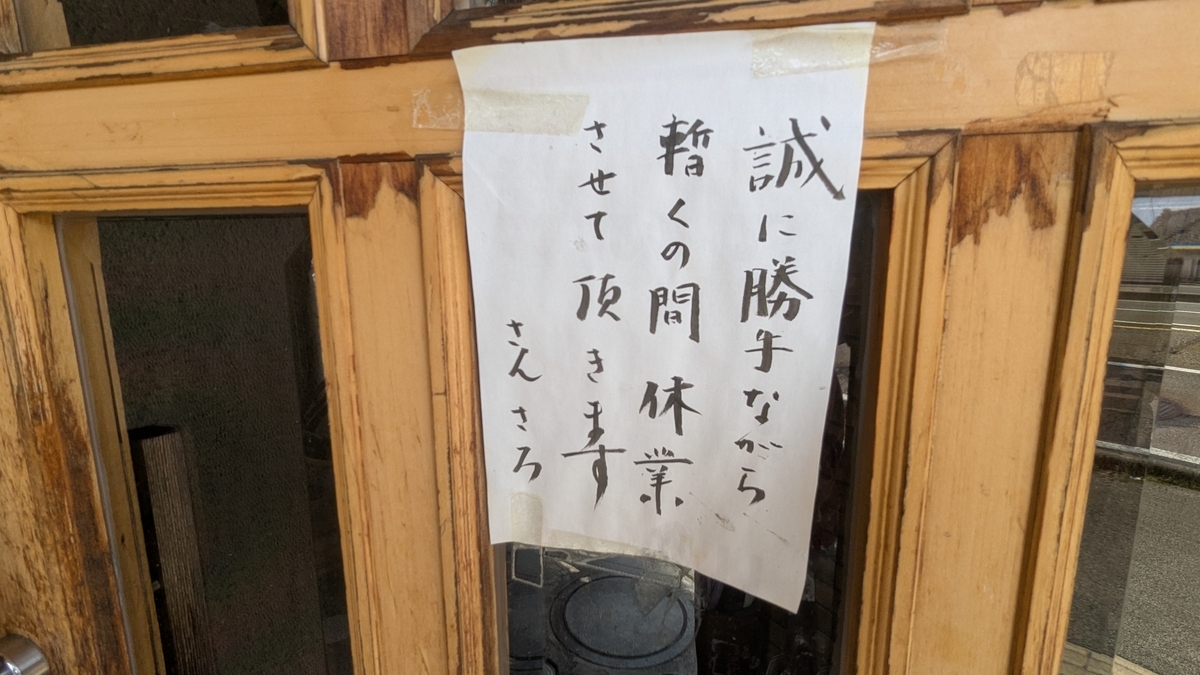 誠に勝手ながら
暫くの間休業
させて頂きます
さんさろ